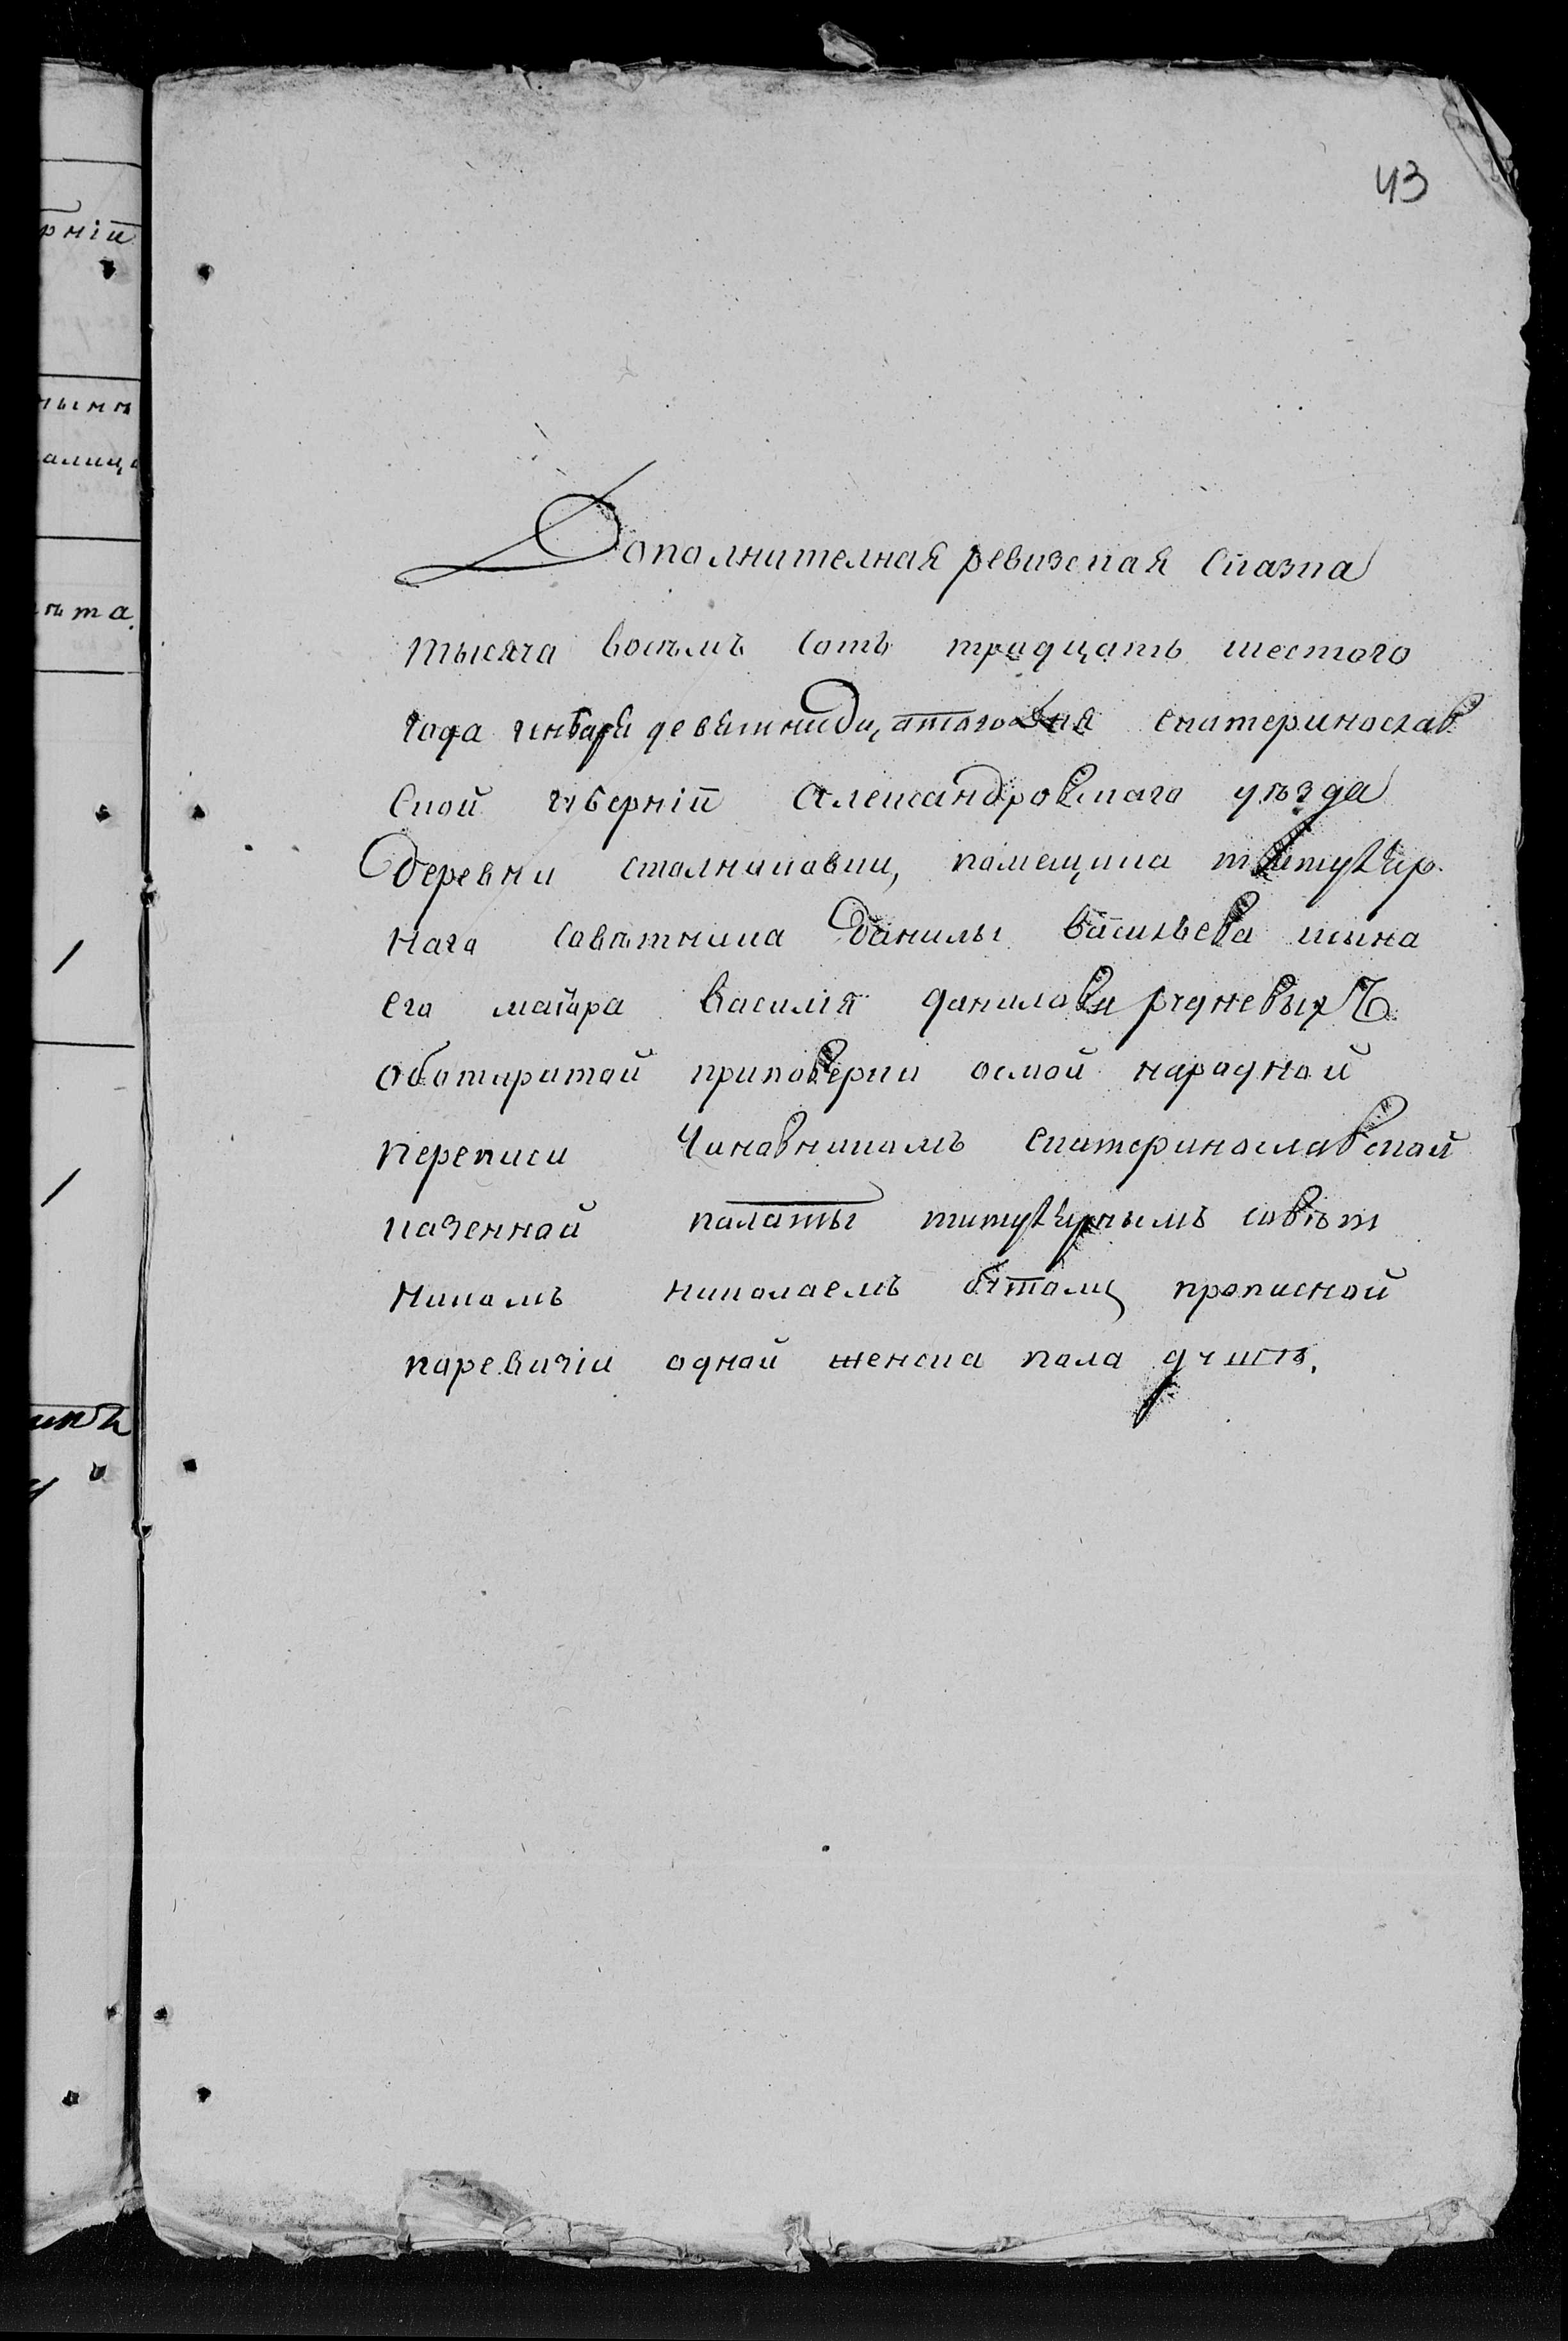 43
Дополнителная ревизская Сказка
тысяча восъмъ сотъ тридцать шестого
года генваря девятнидцатого Дня Екатеринослав
Ской губерніи Александровскаго уезда
Деревни столнаковки, помещика титуляр
наго Советника Данилы Васильева исына
его маіора Василія данилова рудневыхъ
оботкритой приповерки осмой народной
переписи Чиновникомъ Екатеринославской
казенной палаты титулярнымъ совѣт
никомъ николаемъ прописной
поревизіи одной женска пола душѣ.
рніи
нынъ
алица
ѣта.